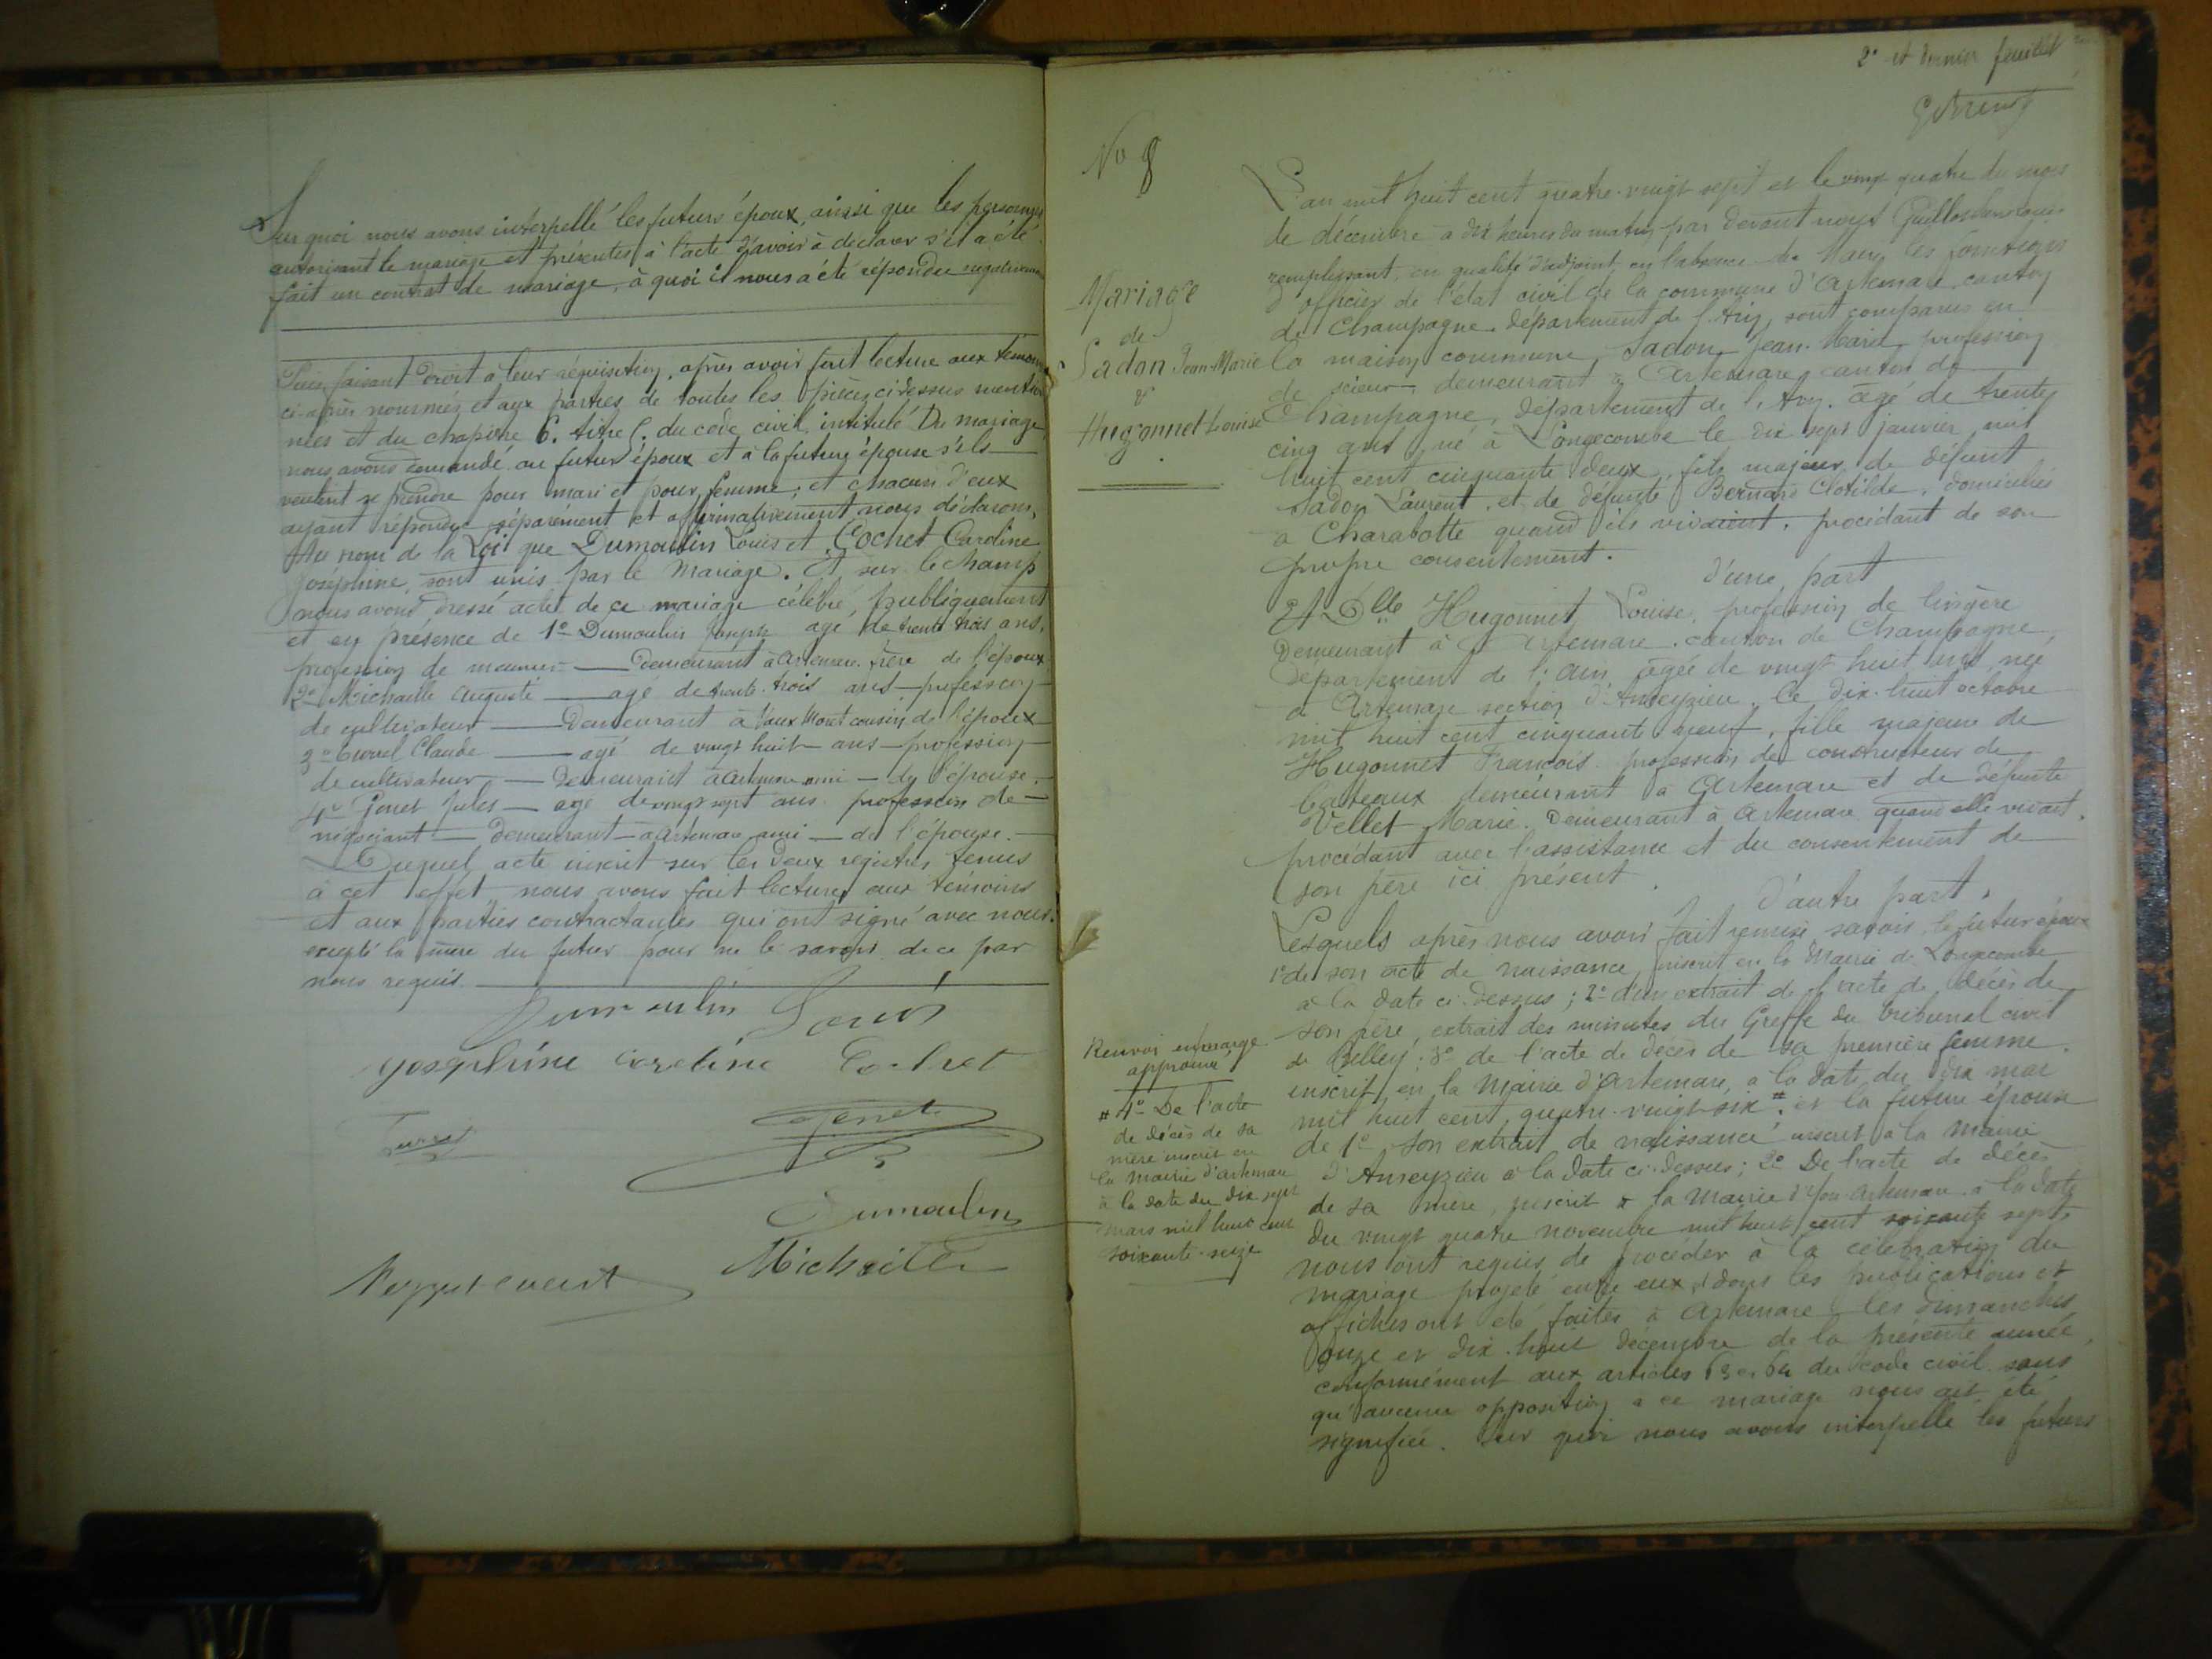 Sur quoi nous avons interpellé les futurs époux, ainsi que les personnes
autorisant le mariage et présentes à l'acte d'avoir à déclarer s'il a été
fait un contrat de mariage, à quoi il nous a été répondu négativement
faisant droit à leur réquisition, après avoir fait lecture aux témoins
ci-après nommés et aux parties de toutes les pièces ci-dessus mention
nées et du chapitre 6. titre 5. du code civil intitulé Du mariage
nous avons demandé au futur époux et à la future épouse s'ils
veulent se prendre pour mari et pour femme, et chacun d'eux
ayant répondu séparément et affirmativement nous déclarons,
Au nom de la Loi que Dumoulin Louis et Cochet Caroline
Joséphine sont unis par le Mariage. Et sur le champ
nous avons dressé acte de ce mariage célébré, publiquement
et en présence de 1º Dumoulin Joseph agé de trente trois ans,
profession de meunier demeurant à Artemare frère de l'époux
2º Michaille Auguste agé de trente-trois ans profession
de cultivateur Demeurant à Vaux Mont cousin de l'époux
3º Curvel Claude agé de vingt huit ans profession
de cultivateur Demeurant à Artemare ami de l'épouse.
4º jules agé de vingt sept ans profession de
négociant demeurant à Artemare ami de l'épouse.
Duquel acte inscrit sur les deux registres tenus
à cet effet, nous avons fait lecture aux témoins
et aux parties contractantes qui ont signé avec nous.
excepté la mère du futur pour ne le savoir de ce par
nous requis.
Dumoulin Louis
Josephine caroline Cochet
Dumoulin
Michaille
2º et dernier feuillet
No 8
Mariage
de
Sadon Jean-Marie
&
Hugonnet Louise
L'an mil huit cent quatre-vingt sept et le vingt quatre du mois
de décembre à dix heures du matin par devant nous Louis
remplissant en qualité d'adjoint en l'absence du Maire les fonctions
d'officier de l'état civil de la commune d'Artemare canton
de Champagne département de l'Ain, sont comparus en
la maison commune, Sadon Jean-Marie profession
de scieur demeurant à Artemare canton de
Champagne, département de l'Ain. agé de trente
cinq ans né à Longecombe le dix sept janvier mil
huit cent cinquante deux, fils majeur de défunt
Sadon Laurent, et de défunte Bernard Clotilde. domiciliés
à Charabotte quand ils vivaient. procédant de son
propre consentement.
d'une part
Et Dlle Hugonnet Louise, profession de lingère
Demeurant à Artemare. canton de Champagne,
Département de l'Ain agée de vingt huit ans née
à Artemare section d'Anseyzieu le dix-huit octobre
mil huit cent cinquante neuf, fille majeure de
Hugonnet François. profession de constructeur de
bateaux demeurant à Artemare et de défunte
Vellet Marie. Demeurant à Artemare quand elle vivait.
procédant avec l'assistance et du consentement de
son père ici présent.
d'autre part.
Lesquels après nous avoir fait remise savoir, le futur époux
1º de son acte de naissance, inscrit en la Mairie de Longecombe
à la date ci-dessus; 2º d'un extrait de l'acte de décès de
son père, extrait des minutes du Greffe du tribunal civil
de Belley; 3º de l'acte de décès de sa première femme.
inscrit en la Mairie d'Artemare, à la date du dix mai
mil huit cent quatre-vingt-six #. et la future épouse
de 1º son extrait de naissance inscrit à la Mairie
d'Anseyzieu à la date ci-dessus; 2º De l'acte de décès
de sa mère, inscrit à la Mairie d'Artemare à la date
du vingt quatre novembre mil huit cent soixante sept,
nous ont requis de procéder à la célébration du
mariage projeté entre eux, & dont les publications et
affiches ont été faites à Artemare les dimanches
onze et dix-huit décembre de la présente année,
conformément aux articles 63 et 64 du code civil sans
qu'aucune opposition à ce mariage nous ait été
signifiée. Sur quoi nous avons interpellé les futurs
Renvoi en marge
approuvé
# 4º De l'acte
de décès de sa
mère inscrit en
la Mairie d'Artemare
à la date du dix sept
mars mil huit cent
soixante-seize